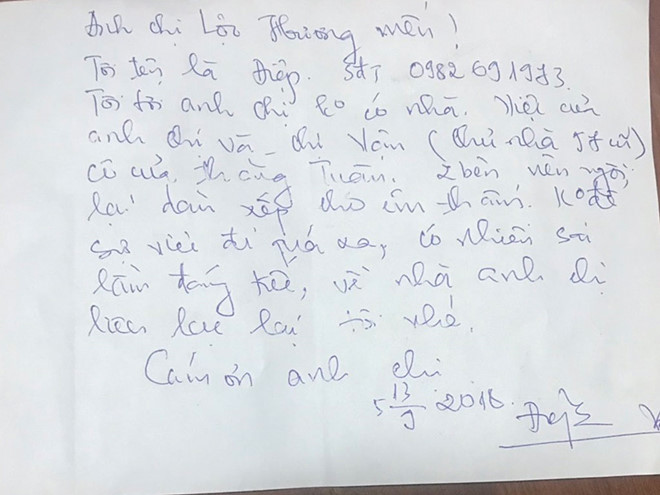 Anh chị Lộc Hương mến!
Tôi tên là Điệp. Sđt 0982691973.
Tôi tới anh chị ko có nhà. Việc của
anh chị và chị Vân (chủ nhà cũ)
cô của thằng Tuấn. 2 bên nên ngồi
lại dàn xếp cho êm thấm. Ko để
sự việc đi quá xa, có nhiều sai
lầm đáng tiếc, về nhà anh chị
liên lạc lại tôi nhé.
Cám ơn anh chị
13/9 2018.
Điệp